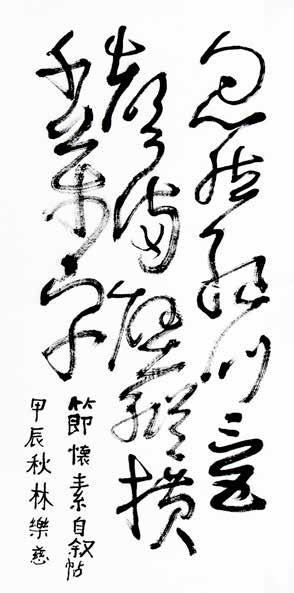 忽然絕叫三五
聲滿壁縱橫
千萬字
節懷素自叙帖
甲辰秋林樂慈